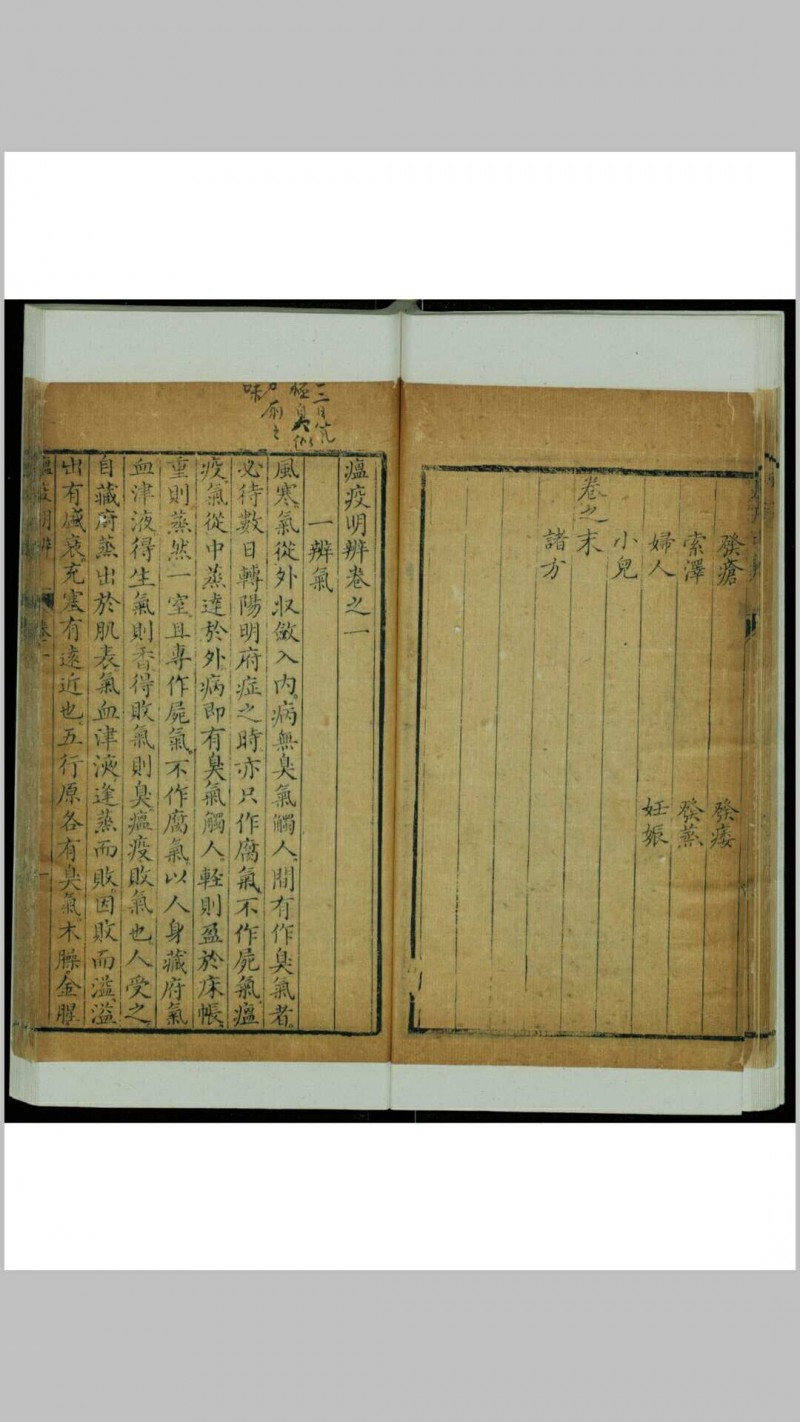 發瘡 發痿
索澤 發蒸
婦人 妊娠
小兒
卷之末
諸方
瘟疫明辨卷之一
一辨氣
風寒氣從外収斂入內病無臭氣觸人間有作臭氣者
必待數日轉陽明府症之時亦只作腐氣不作屍氣瘟
疫氣從中蒸達於外病即有臭氣觸人輕則盈於床帳
重則蒸然一室且專作屍氣不作腐氣以人身藏府氣
血津液得生氣則香得敗氣則臭瘟疫敗氣也人受之
自藏府蒸出於肌表氣血津液逢蒸而敗因敗而溢溢
出有盛衰充塞有遠近也五行原各有臭氣木臊金腥
瘟疫明辨 卷一 一